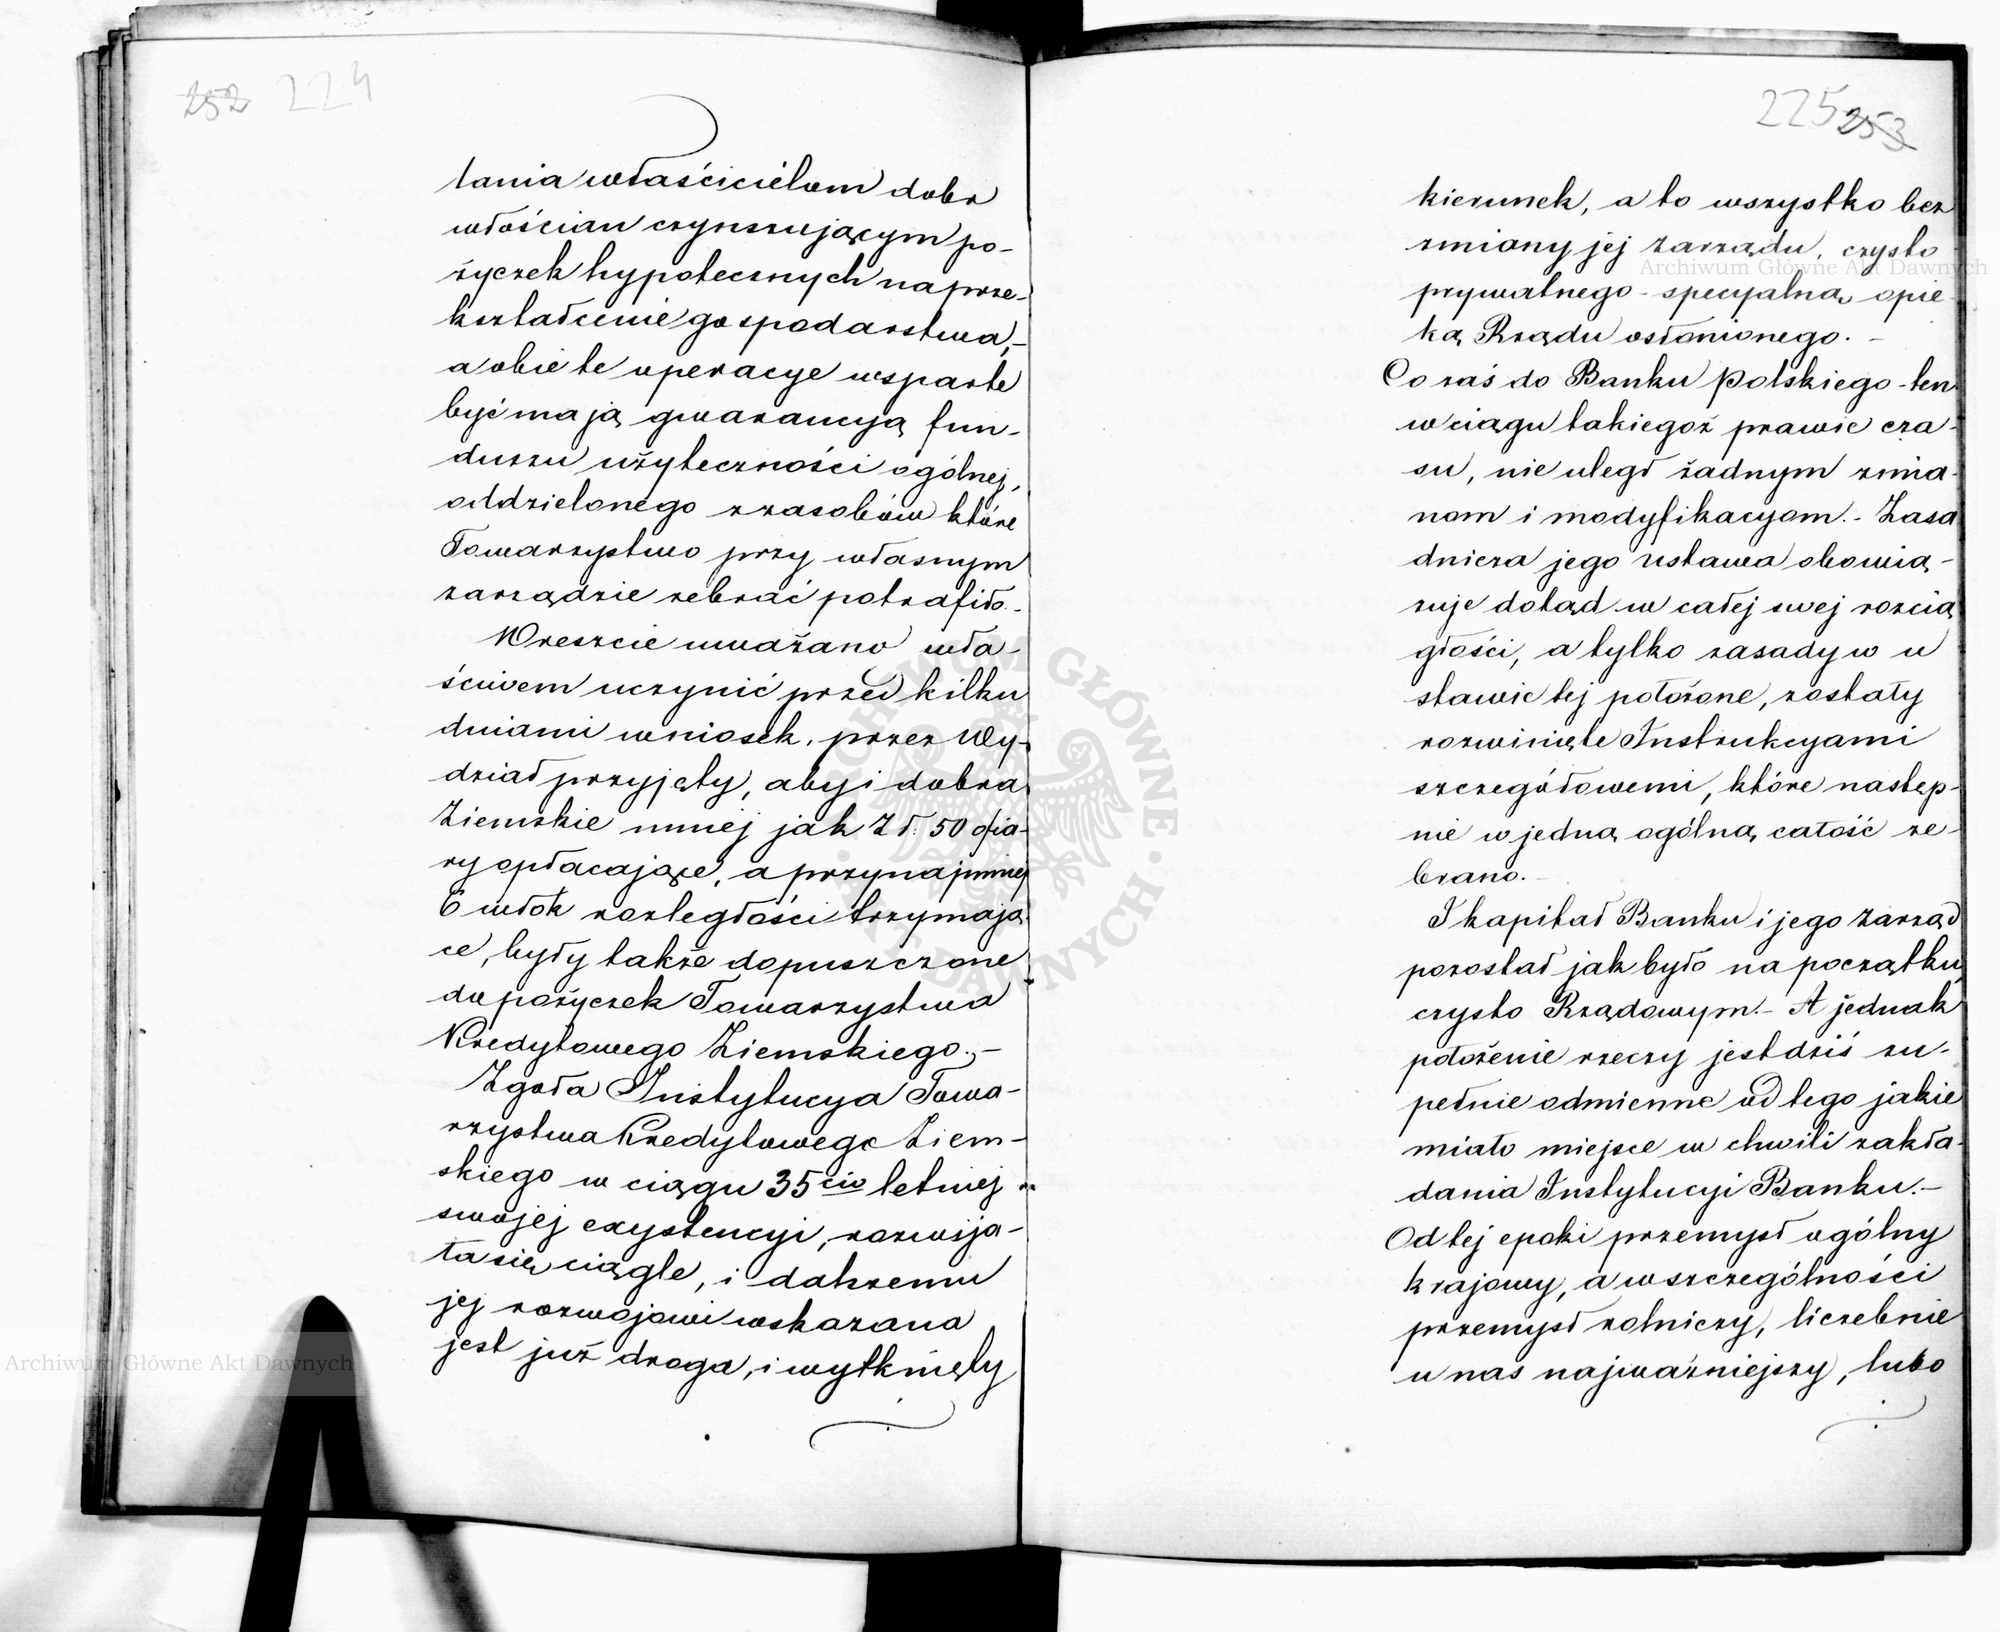 252 224
lania właścicielom dobr
włościan czynszującym po-
życzek hypotecznych na prze-
kształcenie gospodarstwa,-
a obie te operacye wsparte
być mają gwarancyą fun-
duszu użyteczności ogólnej,
oddzielonego z zasobów które
Towarzystwo przy własnym
zarządzie zebrać potrafiło.-
Wreszcie uważano wła-
ściwem uczynić przed kilku
dniami wniosek, przez Wy-
dział przyjęty, aby i dobra
Ziemskie mniej jak Zł. 50 ofia-
ry opłacające, a przynajmniej
6 włók rozległości trzymają-
ce, były także dopuszczone
do pożyczek Towarzystwa
Kredytowego Ziemskiego.-
Zgoła Instytucya Towa-
rzystwa Kredytowego Ziem-
skiego w ciągu 35cio letniej
swojej exystencyi, rozwija-
ła się ciągle, i dalszemu
jej rozwojowi wskazana
jest już droga, i wytknięty
225 253
kierunek, a to wszystko bez
zmiany jej zarządu, czysto
prywatnego - specyalną opie-
ką Rządu osłonionego. -
Co zaś do Banku Polskiego - ten
w ciągu takiegoż prawie cza-
su, nie uległ żadnym zmia-
nom i modyfikacyom. - Zasa
dnicza jego ustawa obowią-
zuje dotąd w całej swej rozcią
głości, a tylko zasady w u
stawie tej położone, zostały
rozwinięte Instrukcyami
szczegółowemi, które następ-
nie w jedną ogólną całość ze-
brano. -
I kapitał Banku i jego zarząd
pozostał jak było na początku
czysto Rządowym. - A jednak
położenie rzeczy jest dziś zu-
pełnie odmienne od tego jakie
miało miejsce w chwili zakła-
dania Instytucyi Banku. -
Od tej epoki przemysł ogólny
krajowy, a w szczególności
przemysł rolniczy, liczebnie
u nas najważniejszy, lubo
Archiwum Główne Akt Dawnych
Archiwum Główne Akt Dawnych
ARCHIWUM GŁÓWNE · AKT DAWNYCH ·